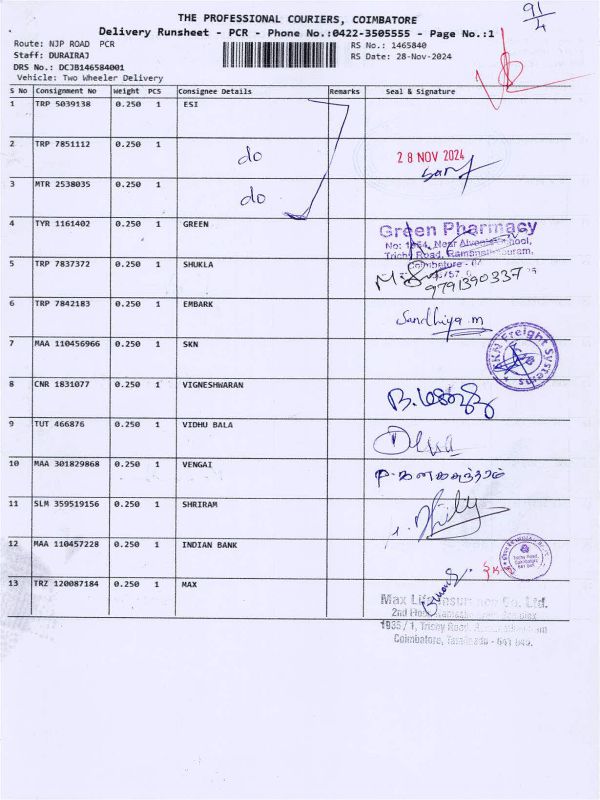 91/4
THE PROFESSIONAL COURIERS, COIMBATORE
Delivery Runsheet - PCR - Phone No.:0422-3505555 - Page No.:1
Route: NJP ROAD PCR
RS No.: 1465840
Staff: DURAIRAJ
RS Date: 28-Nov-2024
DRS No.: DCJB146584001
Vehicle: Two Wheeler Delivery
S No Consignment No Weight PCS Consignee Details Remarks Seal & Signature
1 TRP 5039138 0.250 1 ESI
2 TRP 7851112 0.250 1 do
28 NOV 2024
3 MTR 2538035 0.250 1 do
4 TYR 1161402 0.250 1 GREEN
Green Pharmacy
Trichy Road, Ramanathapuram,
Coimbatore
5 TRP 7837372 0.250 1 SHUKLA
9791390337
6 TRP 7842183 0.250 1 EMBARK
Sandhiya.m
7 MAA 110456966 0.250 1 SKN
Freight Systems
8 CNR 1831077 0.250 1 VIGNESHWARAN
9 TUT 466876 0.250 1 VIDHU BALA
10 MAA 301829868 0.250 1 VENGAI
11 SLM 359519156 0.250 1 SHRIRAM
12 MAA 110457228 0.250 1 INDIAN BANK
Trichy Road,
Coimbatore
13 TRZ 120087184 0.250 1 MAX
Max Life Insurance Co. Ltd.
2nd Floor,
1935 / 1, Trichy Road,
Coimbatore, Tamilnadu - 641 045.